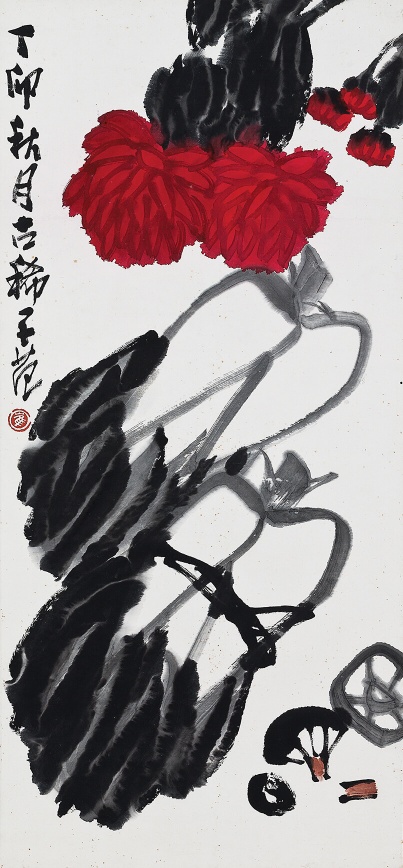 丁卯秋月古稀子范